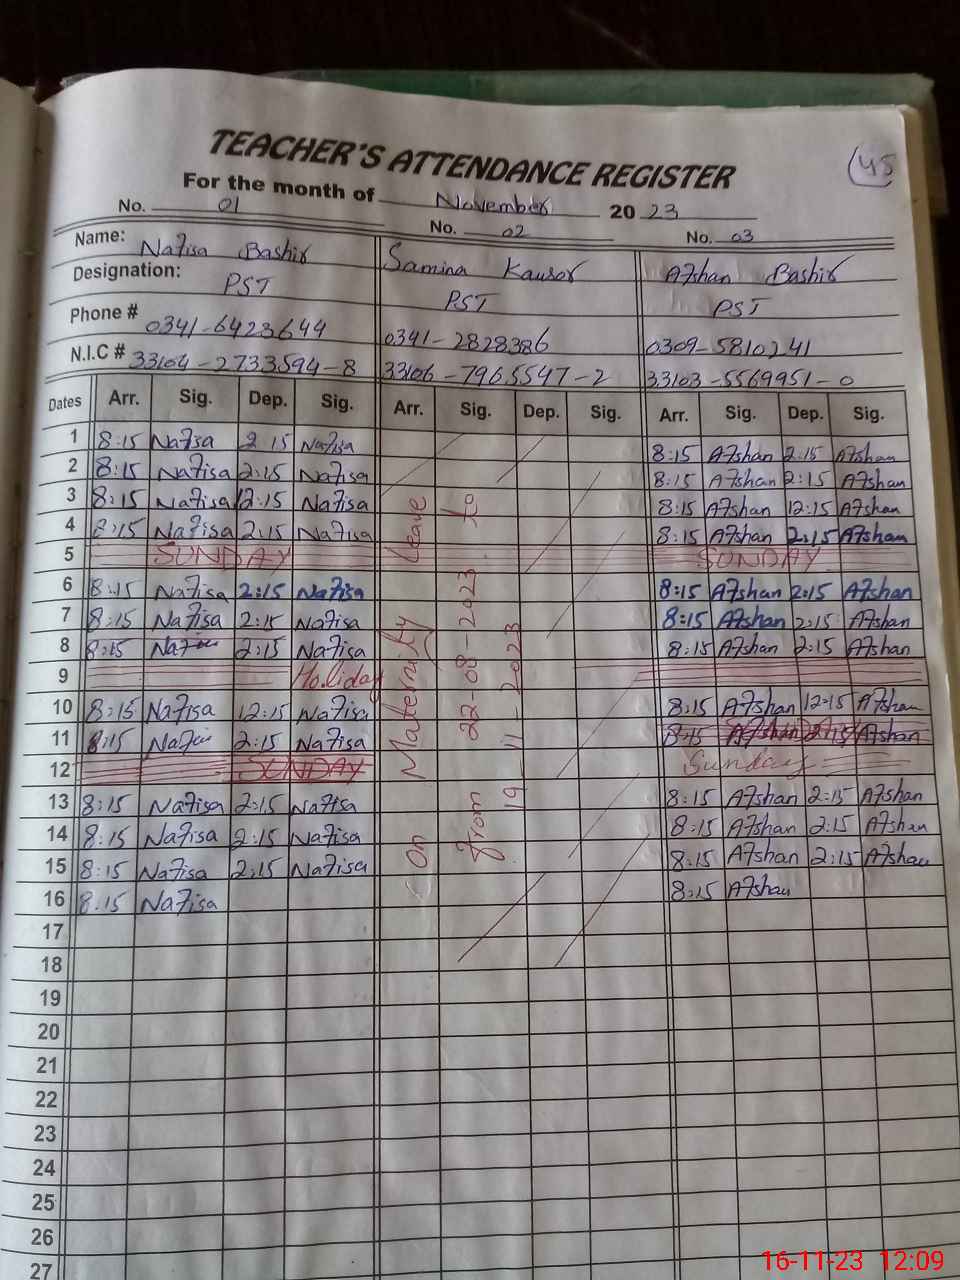 TEACHER'S ATTENDANCE REGISTER
45
For the month of November 2023
No. 01 No. 02 No. 03
Name: Nafisa Bashir Samina Kausar Afshan Bashir
Designation: PST PST PST
Phone # 0341-6423644 0341-2828386 0309-5810241
N.I.C # 33104-2733594-8 33106-7965547-2 33103-5569951-0
Dates Arr. Sig. Dep. Sig. Arr. Sig. Dep. Sig. Arr. Sig. Dep. Sig.
1 8:15 Nafisa 2 15 Nafisa 8:15 Afshan 2:15 Afshan
2 8:15 Nafisa 2:15 Nafisa 8:15 Afshan 2:15 Afshan
3 8:15 Nafisa 12:15 Nafisa 8:15 Afshan 12:15 Afshan
4 8:15 Nafisa 2:15 Nafisa 8:15 Afshan 2:15 Afshan
5 SUNDAY SUNDAY
6 8:15 Nafisa 2:15 Nafisa 8:15 Afshan 2:15 Afshan
7 8:15 Nafisa 2:15 Nafisa 8:15 Afshan 2:15 Afshan
8 8:15 Nafisa 2:15 Nafisa 8:15 Afshan 2:15 Afshan
9 Holiday
10 8:15 Nafisa 12:15 Nafisa 8:15 Afshan 12:15 Afshan
11 8:15 Nafisa 2:15 Nafisa 8:15 Afshan 2:15 Afshan
12 SUNDAY Sunday
13 8:15 Nafisa 2:15 Nafisa 8:15 Afshan 2:15 Afshan
14 8:15 Nafisa 2:15 Nafisa 8:15 Afshan 2:15 Afshan
15 8:15 Nafisa 2:15 Nafisa 8:15 Afshan 2:15 Afshan
16 8:15 Nafisa 8:15 Afshan
17
18
19
20
21
22
23
24
25
26
27
On Maternity Leave
From 22-08-2023 to
19-11-2023
16-11-23 12:09